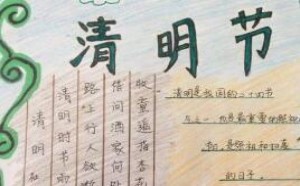 清明节
清明
清明时节
路上行人欲断
借问酒家何处
牧童遥指杏
清明是我国的二十四节
之一，也是最重要的祭祀
是祭祖和扫墓
的日子